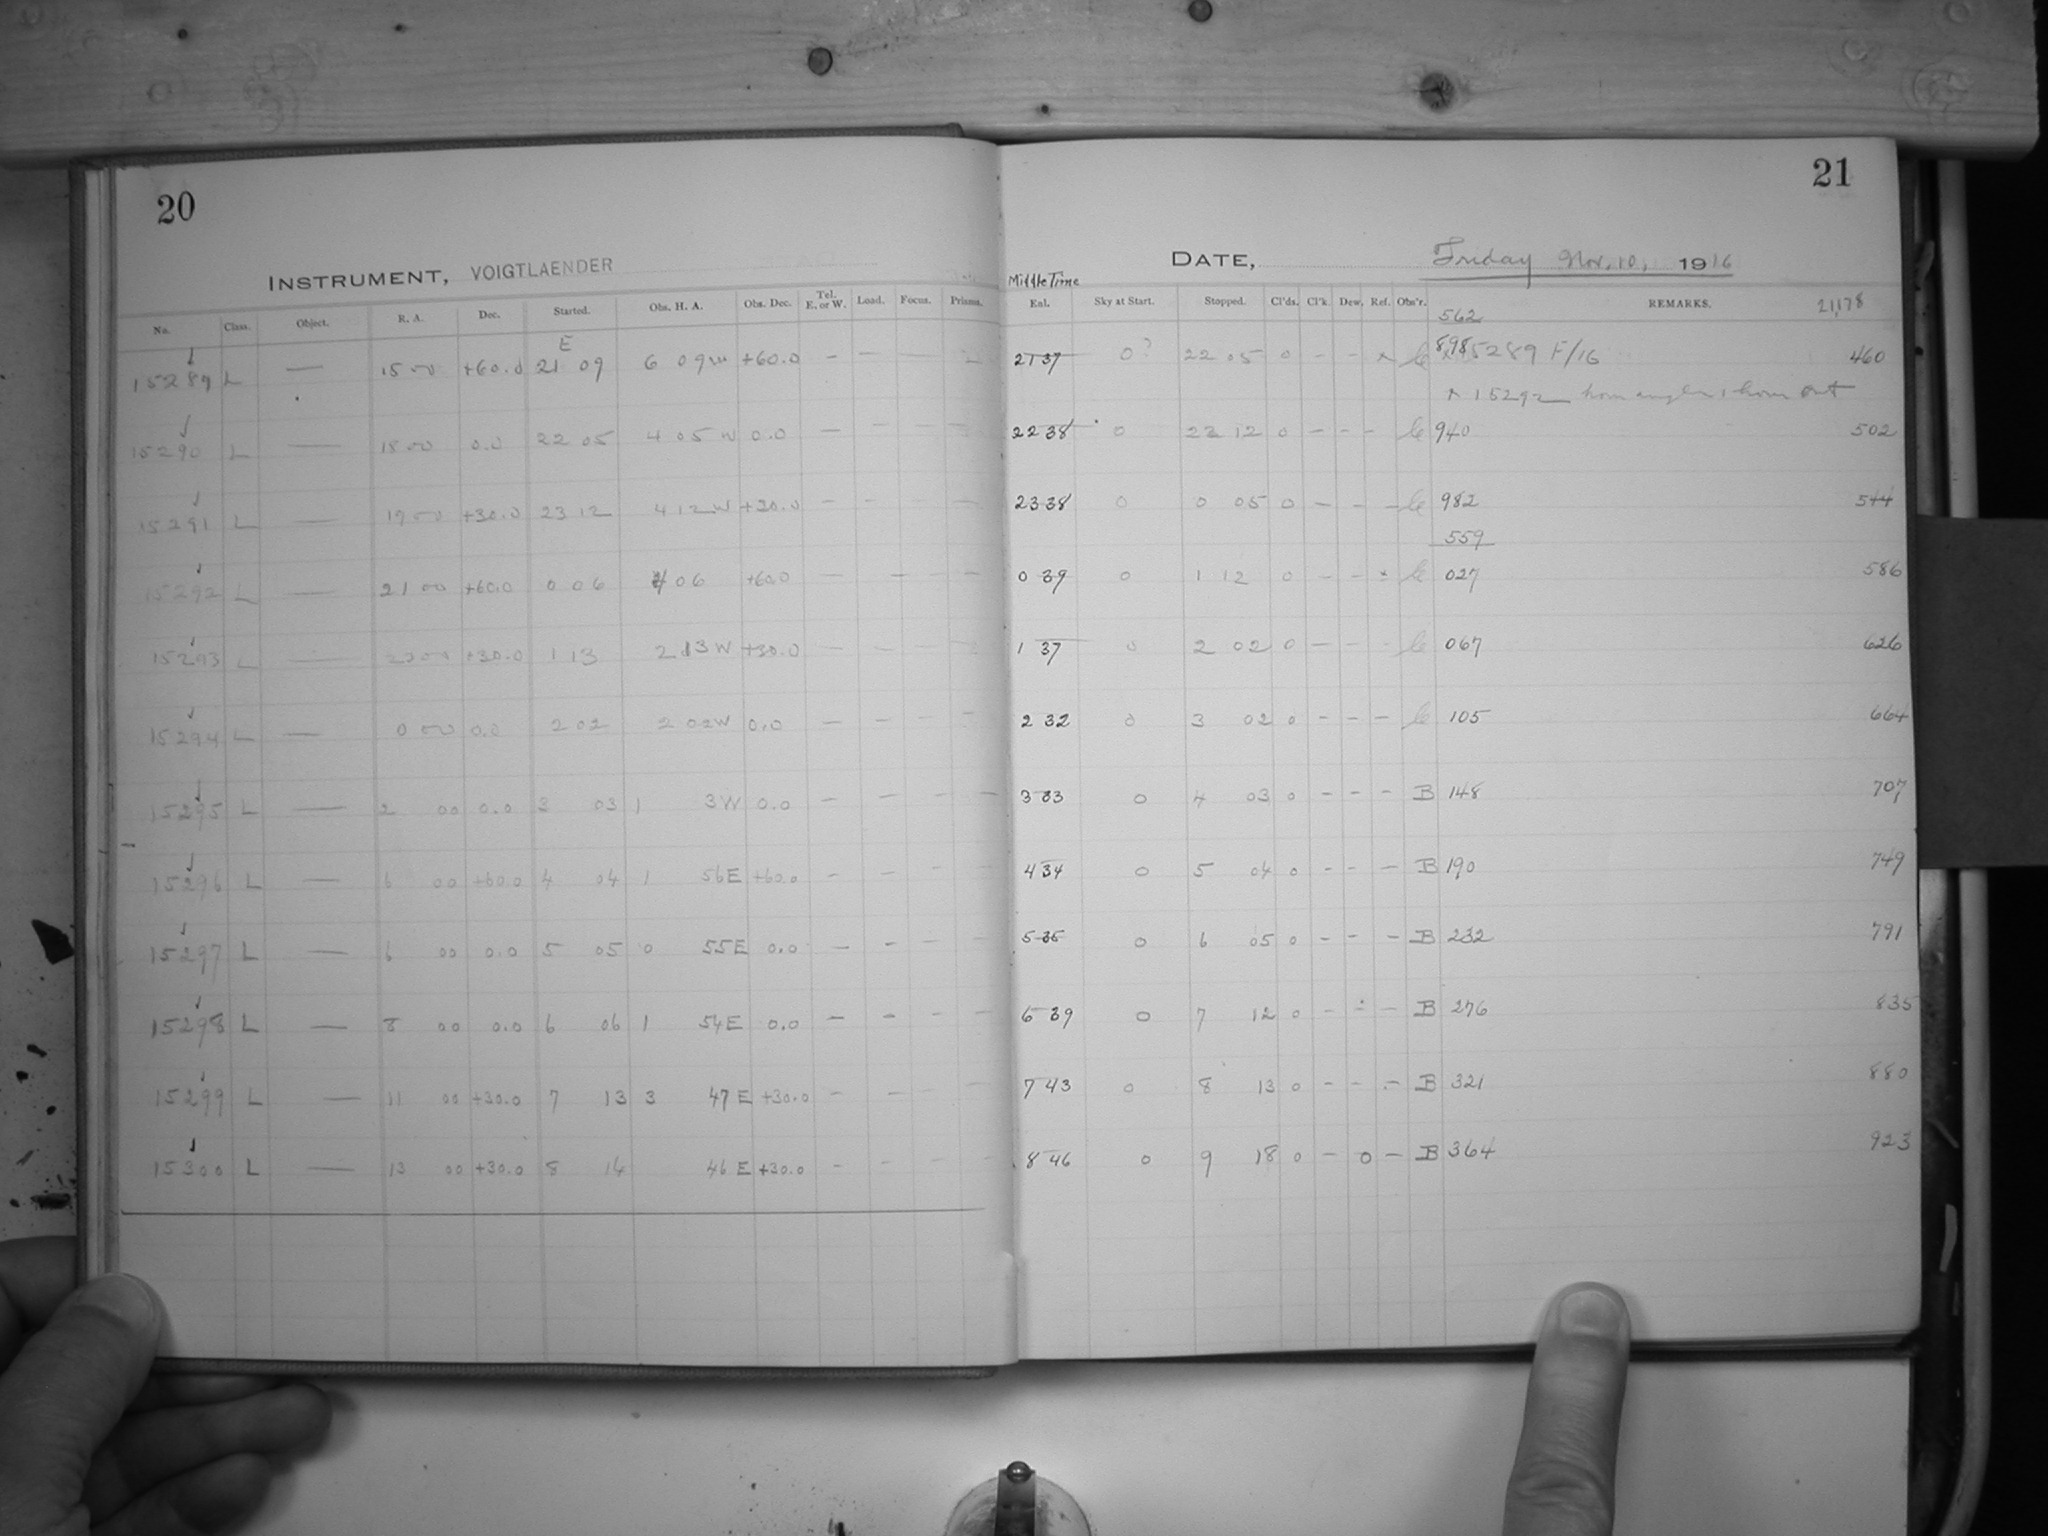 20
INSTRUMENT, VOIGTLAENDER
No. Class. Object. R. A. Dec. Started. Obs. H. A. Obs. Dec. Tel. E. or W. Load. Focus. Prisms.
E
15289 L — 15 00 +60.0 21 09 6 09 W +60.0 — — — —
15290 L — 18 00 0.0 22 05 4 05 W 0.0 — — — —
15291 L — 19 00 +30.0 23 12 4 12 W +30.0 — — — —
15292 L — 21 00 +60.0 0 06 4 06 +60.0 — — — —
15293 L — 23 00 +30.0 1 13 2 13 W +30.0 — — — —
15294 L — 0 00 0.0 2 02 2 02 W 0.0 — — — —
15295 L — 2 00 0.0 3 03 1 3 W 0.0 — — — —
15296 L — 6 00 +60.0 4 04 1 56 E +60.0 — — — —
15297 L — 6 00 0.0 5 05 0 55 E 0.0 — — — —
15298 L — 8 00 0.0 6 06 1 54 E 0.0 — — — —
15299 L — 11 00 +30.0 7 13 3 47 E +30.0 — — — —
15300 L — 13 00 +30.0 8 14 46 E +30.0 — — — —
21
DATE, Friday Nov. 10, 1916
Middle Time
Enl. Sky at Start. Stopped. Cl'ds. Cl'k. Dew. Ref. Obs'r. REMARKS. 21,178
562
21 37 0? 22 05 0 — — x 898 15289 F/16 460
x 15292 hour angle 1 hour out
22 38 0 23 12 0 — — — 940 502
23 38 0 0 05 0 — — — 982 544
559
0 39 0 1 12 0 — — 027 586
1 37 0 2 02 0 — — 067 626
2 32 0 3 02 0 — — — 105 664
3 33 0 4 03 0 — — — B 148 707
4 34 0 5 04 0 — — — B 190 749
5 35 0 6 05 0 — — — B 232 791
6 39 0 7 12 0 — — — B 276 835
7 43 0 8 13 0 — — — B 321 880
8 46 0 9 18 0 — 0 — B 364 923